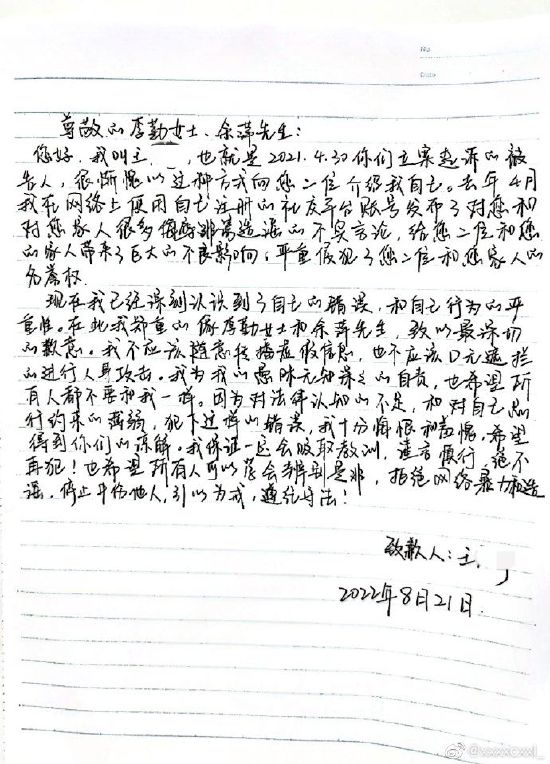 No
Date
尊敬的李勤女士、余萍先生:
您好,我叫王 ,也就是2021.4.30你们立案起诉的被
告人,很惭愧以这种方式向您二位介绍我自己。去年4月
我在网络上使用自己注册的社交平台账号发布了对您和
对您家人很多 造谣的不实言论,给您二位和您
的家人带来了巨大的不良影响,严重侵犯了您二位和您家人的
名誉权.
现在我已经深刻认识到了自己的错误,和自己行为的严
重性。在此我郑重的向李勤女士和余萍先生,致以最深切
的歉意。我不应该随意传播虚假信息,也不应该口无遮拦
的进行人身攻击。我为我的愚昧无知深深的自责,也希望所
有人都不要和我一样。因为对法律认知的不足,和对自己
行约束的薄弱,犯下这样的错误,我十分悔恨和羞愧,希望
得到你们的谅解。我保证一定会吸取教训,谨言慎行,绝不
再犯!也希望所有人可以学会辨别是非,拒绝网络暴力和造
谣,停止中伤他人,引以为戒,遵纪守法!
致歉人:王
2022年8月21日.
@xxxxcxxl_